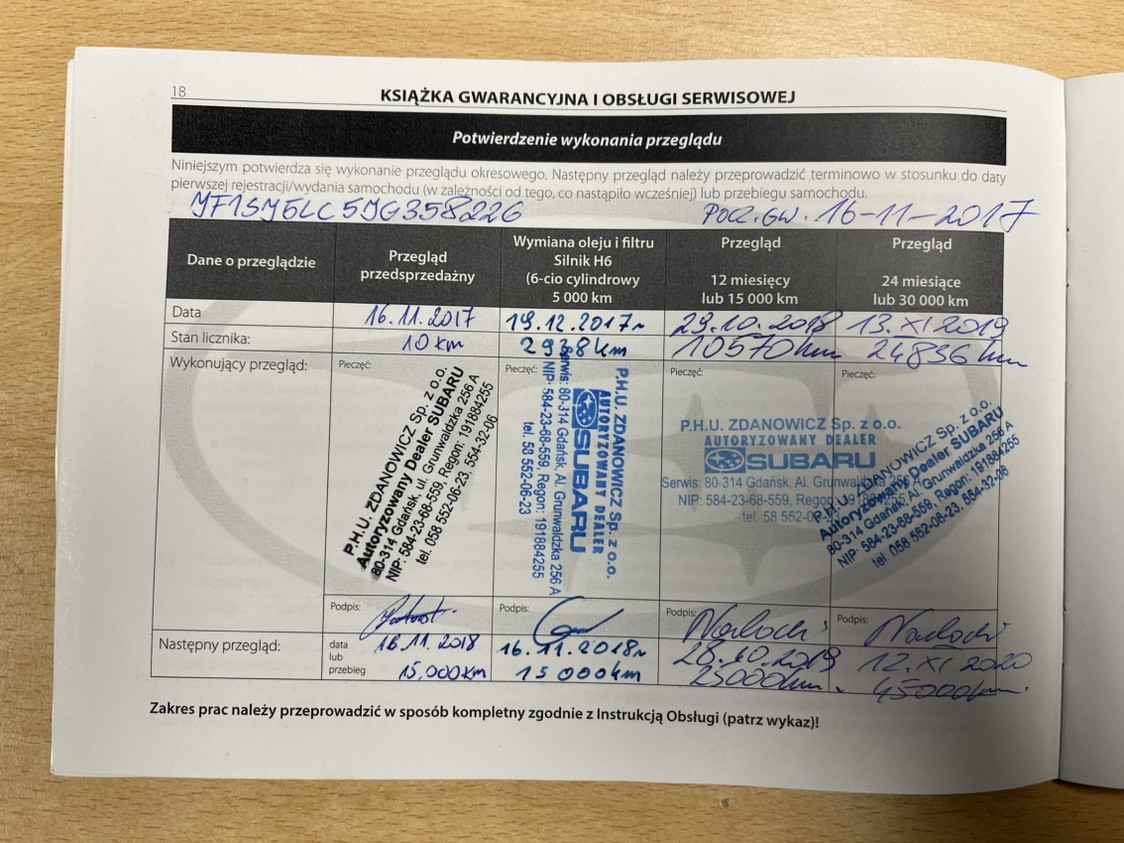 18
KSIĄŻKA GWARANCYJNA I OBSŁUGI SERWISOWEJ
Potwierdzenie wykonania przeglądu
Niniejszym potwierdza się wykonanie przeglądu okresowego. Następny przegląd należy przeprowadzić terminowo w stosunku do daty
pierwszej rejestracji/wydania samochodu (w zależności od tego, co nastąpiło wcześniej) lub przebiegu samochodu.
JF1SJ5LC5JG358226 POCZ.GW. 16-11-2017
Dane o przeglądzie
Przegląd
przedsprzedażny
Wymiana oleju i filtru
Silnik H6
(6-cio cylindrowy
5 000 km
Przegląd
12 miesięcy
lub 15 000 km
Przegląd
24 miesiące
lub 30 000 km
Data 16.11.2017 19.12.2017r 29.10.2018 13.XI 2019
Stan licznika: 10 km 2938km 10570km 24836 km
Wykonujący przegląd:
Pieczęć:
P.H.U. ZDANOWICZ Sp. z o.o.
Autoryzowany Dealer SUBARU
80-314 Gdańsk, ul. Grunwaldzka 256 A
NIP: 584-23-68-559, Regon: 191884255
tel. 058 552-06-23, 554-32-06
Pieczęć:
P.H.U. ZDANOWICZ Sp. z o.o.
AUTORYZOWANY DEALER
SUBARU
Serwis: 80-314 Gdańsk, Al. Grunwaldzka 256 A
NIP: 584-23-68-559, Regon: 191884255
tel. 58 552-06-23
Pieczęć:
P.H.U. ZDANOWICZ Sp. z o.o.
AUTORYZOWANY DEALER
SUBARU
Serwis: 80-314 Gdańsk, Al. Grunwaldzka
NIP: 584-23-68-559, Regon: 191884255
tel. 58 552-0
Pieczęć:
P.H.U. ZDANOWICZ Sp. z o.o.
Autoryzowany Dealer SUBARU
80-314 Gdańsk, Al. Grunwaldzka 256 A
NIP: 584-23-68-559, Regon: 191884255
tel. 058 552-06-23, 554-32-06
Podpis: Podpis: Podpis: Podpis:
Następny przegląd:
data
lub
przebieg
16.11.2018 16.11.2018r 28.10.2019 12.XI 2020
15,000km 15 000km 25000km. 45000km.
Zakres prac należy przeprowadzić w sposób kompletny zgodnie z Instrukcją Obsługi (patrz wykaz)!